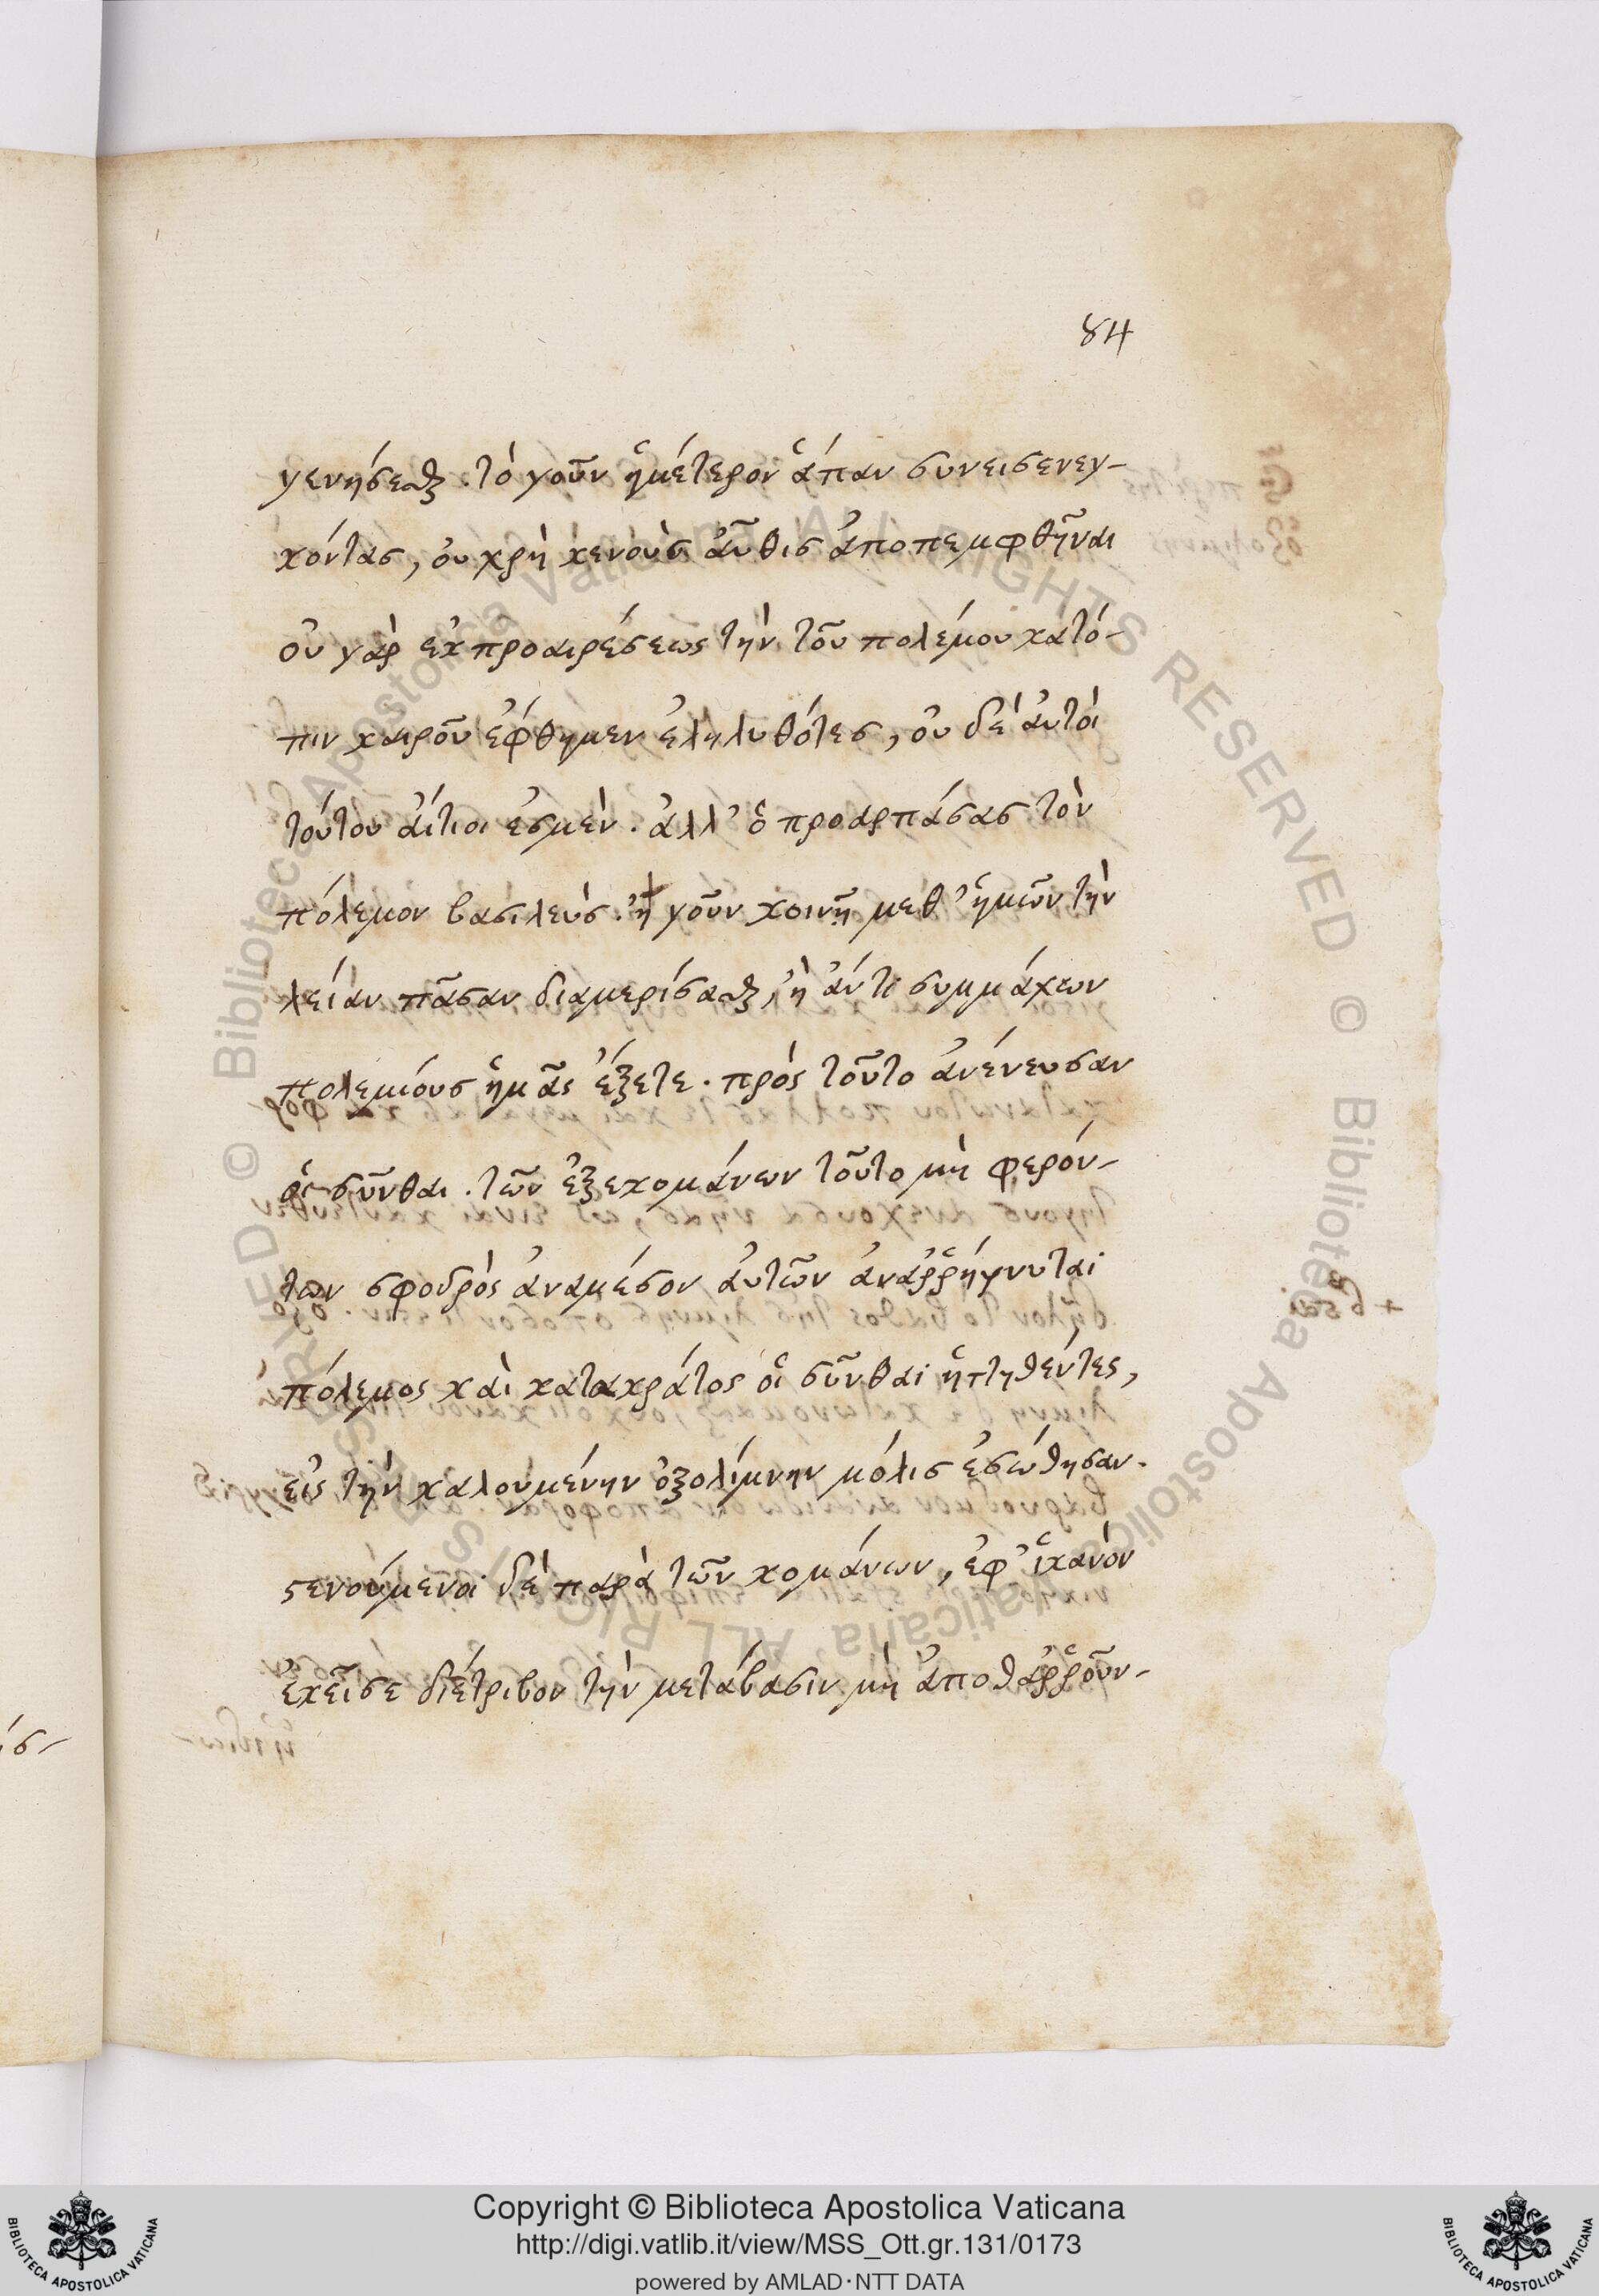 84
γενήσεσθαι. τὸ γοῦν ἡμέτερον ἅπαν συνεισενεγ-
κόντας, οὐ χρὴ κενοὺς αὖθις ἀποπεμφθῆναι
οὐ γὰρ ἐκ προαιρέσεως τὴν τοῦ πολέμου κατό-
πιν καιροῦ ἔφθημεν ἐληλυθότες, οὐ δὲ αὐτοὶ
τούτου αἴτιοι ἐσμὲν. ἀλλ' ὁ προαρπάσας τὸν
πόλεμον βασιλεύς. ἢ γοῦν κοινῇ μεθ' ἡμῶν τὴν
λείαν πᾶσαν διαμερίσασθαι, ἢ ἀντὶ συμμάχων
πολεμίους ἡμᾶς ἕξετε. πρὸς τοῦτο ἀνένευσαν
οἱ σῦνθαι. τῶν ἐξεκομάνων τοῦτο μὴ φερόν-
των σφοδρὸς ἀναμέσον αὐτῶν ἀναῤῥήγνυται
πόλεμος καὶ κατακράτος οἱ σῦνθαι ἡττηθέντες,
εἰς τὴν καλουμένην ὀξολίμνην μόλις ἐσώθησαν.
στενούμενοι δὲ παρὰ τῶν κομάνων, ἐφ' ἱκανὸν
ἐκεῖσε διέτριβον τὴν μετάβασιν μὴ ἀποθαῤῥοῦν-
Copyright © Biblioteca Apostolica Vaticana
http://digi.vatlib.it/view/MSS_Ott.gr.131/0173
powered by AMLAD·NTT DATA
BIBLIOTECA APOSTOLICA VATICANA
BIBLIOTECA APOSTOLICA VATICANA
© Biblioteca Apostolica Vaticana, ALL RIGHTS RESERVED © Biblioteca Apostolica Vaticana, ALL RIGHTS RESERVED